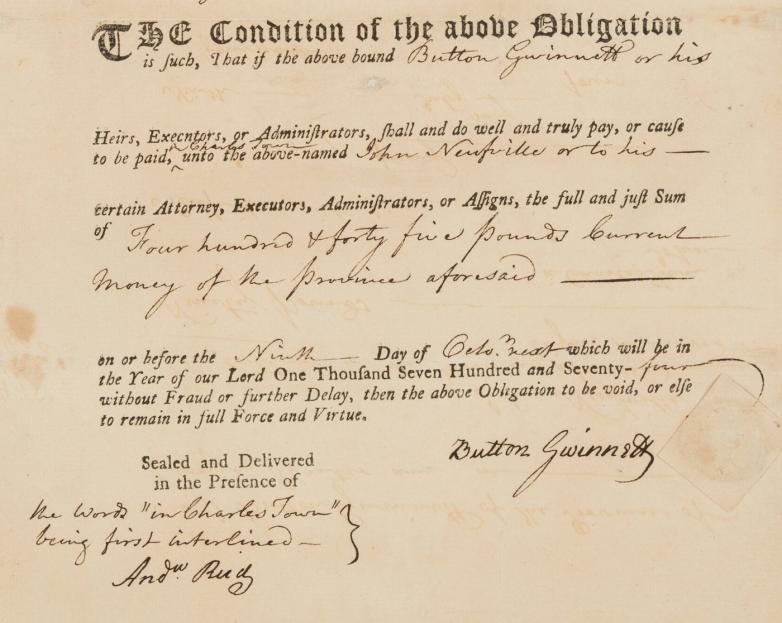 THE Condition of the above Obligation
is ſuch, That if the above bound Button Gwinnett or his
Heirs, Execntors, or Adminiſtrators, ſhall and do well and truly pay, or cauſe
in Charles Town
to be paid, ‸ unto the above-named John Neufville or to his —
certain Attorney, Executors, Adminiſtrators, or Aſſigns, the full and juſt Sum
of Four hundred & forty five pounds Current
Money of the Province aforesaid —
on or before the Ninth — Day of Octo.r next which will be in
the Year of our Lord One Thouſand Seven Hundred and Seventy- four
without Fraud or further Delay, then the above Obligation to be void, or elſe
to remain in full Force and Virtue.
Button Gwinnett
Sealed and Delivered
in the Preſence of
the Words "in Charles Town"
being first interlined —
Andw. Reid